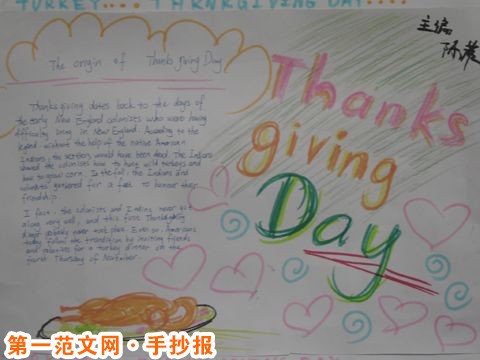 TURKEY.... THANKGIVING DAY....
主编
The origin of Thanks giving Day
Thanks giving dates back to the days of
the early New England colonists who were having
difficulty living in New England. According to the
legend, without the help of the native American
Indians, the settlers would have been dead. The Indians
showed the colonists how to hunt wild turkeys and
how to grow corn. In the fall, the Indians and
colonists gathered for a feast to honour their
friendship
In fact, the colonists and Indians never got
along very well, and this first Thanksgiving
dinner probably never took place. Even so, Americans
today follow the tradition by inviting friends
and relatives for a turkey dinner on the
fourth Thursday of November.
Thanks
giving
Day
第一范文网·手抄报